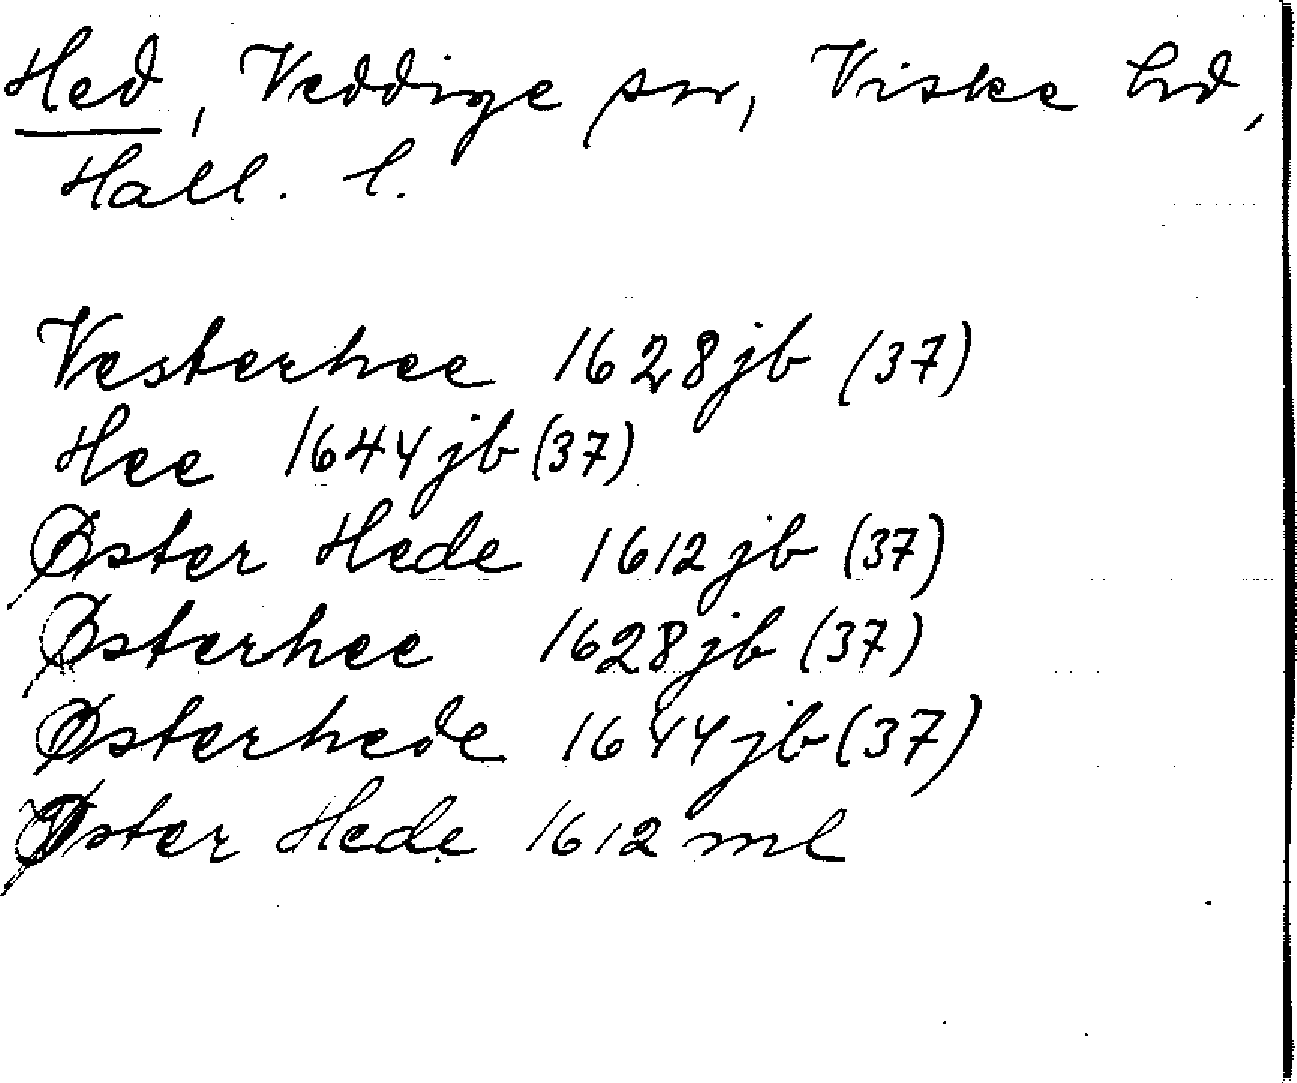 Hed, Veddige sn, Viske hd,
Hall. l.
Vesterhee 1628 jb (37)
Hee 1644 jb (37)
Øster Hede 1612 jb (37)
Østerhee 1628 jb (37)
Østerhede 1644 jb (37)
Øster Hede 1612 ml